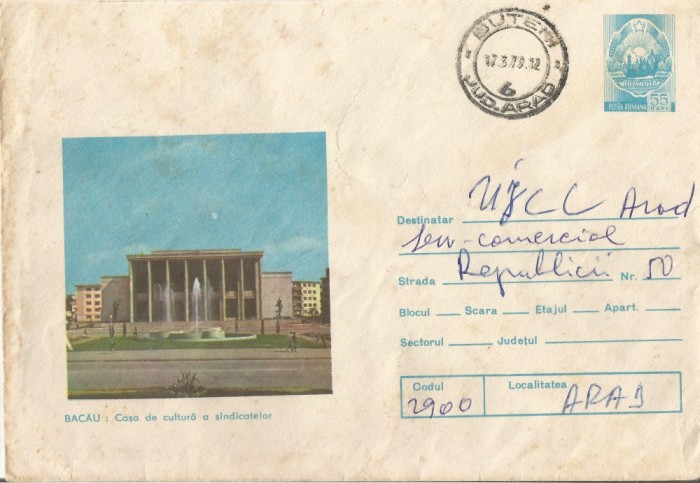 BUTENI
17.3.79.12
b
JUD. ARAD
ROMÂNIA
POSTA ROMANA 55 BANI
Destinatar UJCC Arad
serv-comercial
Strada Republicii Nr. 50
Blocul Scara Etajul Apart.
Sectorul Județul
Codul Localitatea
2900 ARAD
BACĂU : Casa de cultură a sindicatelor